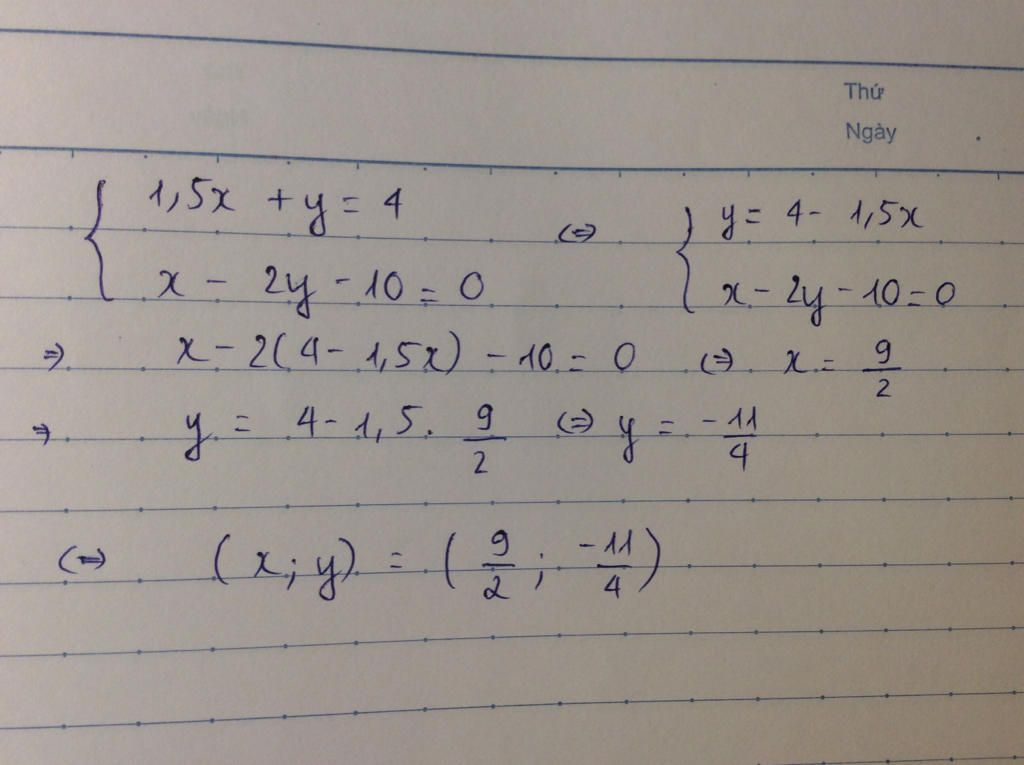 Thứ
Ngày
{ 1,5x + y = 4 <=> { y = 4 - 1,5x
x - 2y - 10 = 0 x - 2y - 10 = 0
=> x - 2(4 - 1,5x) - 10 = 0 <=> x = 9/2
=> y = 4 - 1,5 . 9/2 <=> y = -11/4
<=> (x; y) = (9/2 ; -11/4)